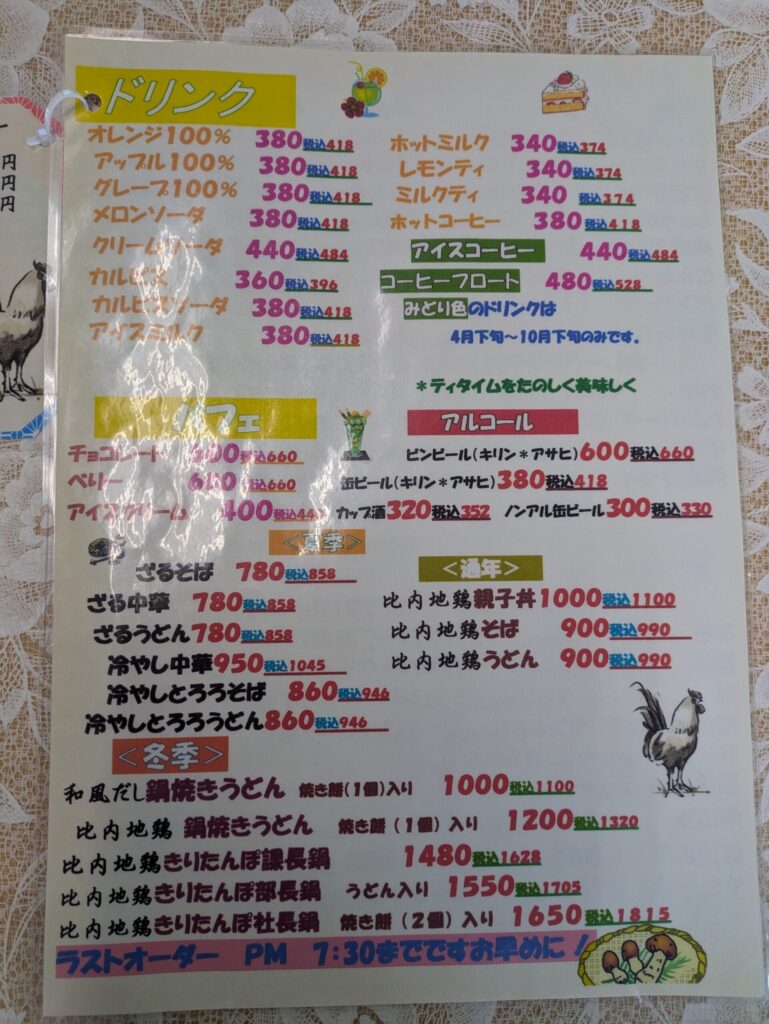 ドリンク
オレンジ100% 380税込418
アップル100% 380税込418
グレープ100% 380税込418
メロンソーダ 380税込418
クリームソーダ 440税込484
カルピス 360税込396
カルピスソーダ 380税込418
アイスミルク 380税込418
ホットミルク 340税込374
レモンティ 340税込374
ミルクティ 340税込374
ホットコーヒー 380税込418
アイスコーヒー 440税込484
コーヒーフロート 480税込528
みどり色のドリンクは
4月下旬～10月下旬のみです。
＊ティタイムをたのしく美味しく
パフェ
チョコレート 600税込660
ベリー 600税込660
アイスクリーム 400税込440
アルコール
ビンビール(キリン＊アサヒ)600税込660
缶ビール(キリン＊アサヒ)380税込418
カップ酒320税込352 ノンアル缶ビール300税込330
＜夏季＞
ざるそば 780税込858
ざる中華 780税込858
ざるうどん780税込858
冷やし中華950税込1045
冷やしとろろそば 860税込946
冷やしとろろうどん860税込946
＜通年＞
比内地鶏親子丼1000税込1100
比内地鶏そば 900税込990
比内地鶏うどん 900税込990
＜冬季＞
和風だし鍋焼きうどん 焼き餅(1個)入り 1000税込1100
比内地鶏 鍋焼きうどん 焼き餅(1個)入り 1200税込1320
比内地鶏きりたんぽ課長鍋 1480税込1628
比内地鶏きりたんぽ部長鍋 うどん入り 1550税込1705
比内地鶏きりたんぽ社長鍋 焼き餅(2個)入り 1650税込1815
ラストオーダー PM 7:30まででですお早めに！
円
円
円